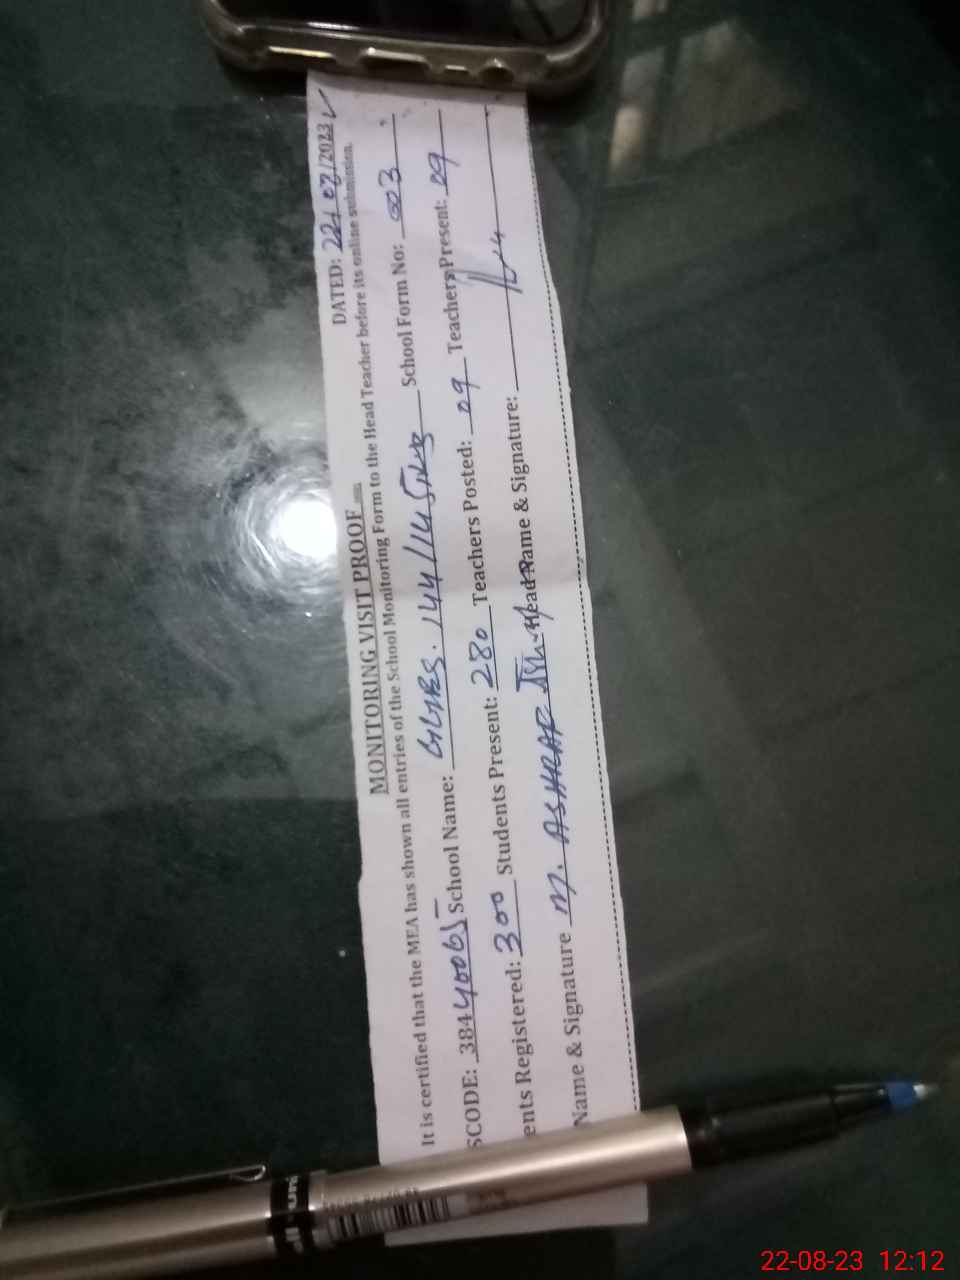 MONITORING VISIT PROOF
DATED: 22/08/2023
It is certified that the MEA has shown all entries of the School Monitoring Form to the Head Teacher before its online submission.
SCODE: 38440065 School Name: GGHSS. 144/14 School Form No: 003
ents Registered: 300 Students Present: 280 Teachers Posted: 09 Teachers Present: 09
Name & Signature M. ASHRAF Head Name & Signature:
22-08-23 12:12